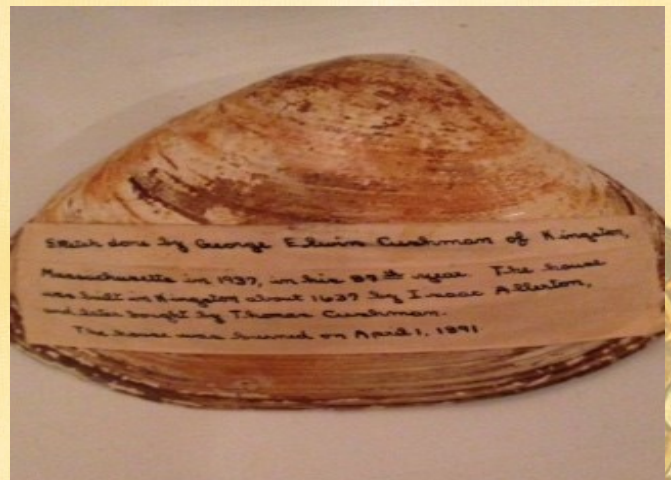 Sketch done by George Edwin Cushman of Kingston,
Massachusetts in 1937, in his 89th year. The house
was built in Kingston about 1637 by Isaac Allerton,
and later bought by Thomas Cushman.
The house was burned on April 1, 1891